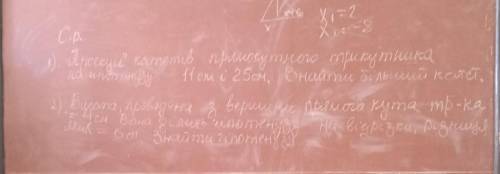 x₁=2
С.р.
1) Проекції катетів прямокутного трикутника
на гіпотенузу 11см і 25см. Знайти більший катет.
2) Висота, проведена з вершини прямого кута тр-ка
= 4см Вона ділить гіпотенузу на відрізки, різниця
= 6см Знайти гіпотенузу